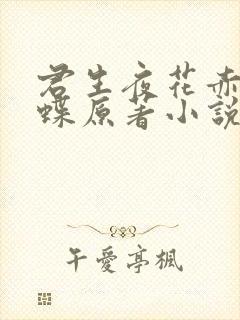 君生夜花赤
蝶原著小說
午愛亭楓